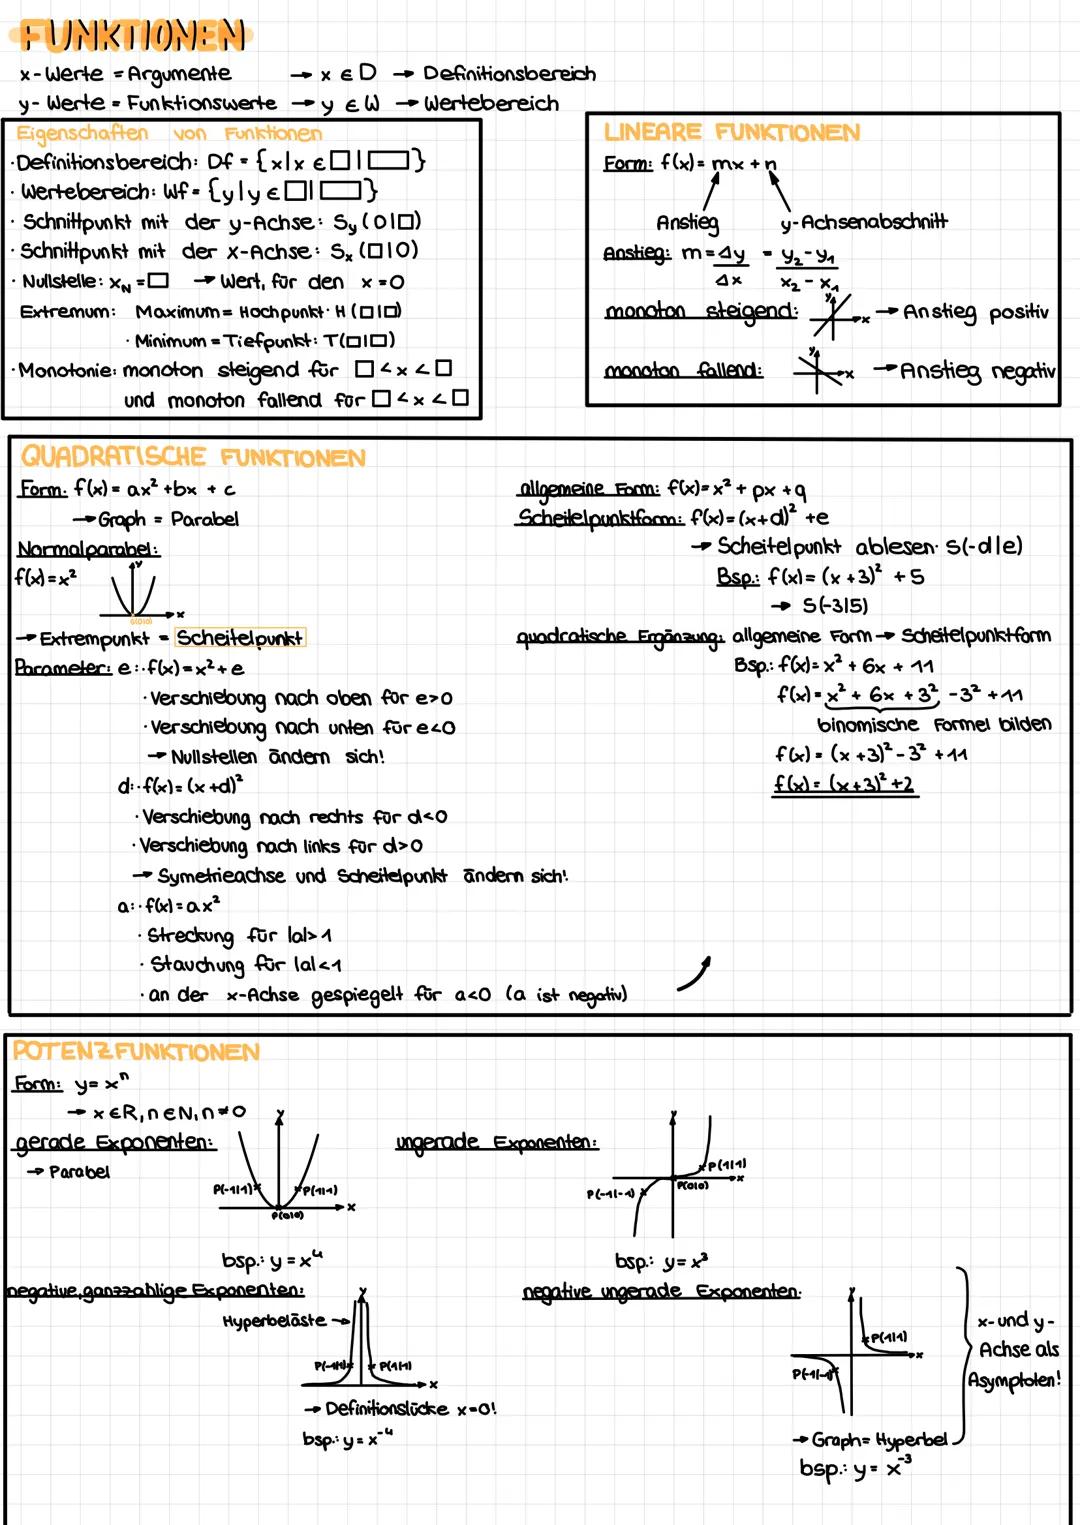 FUNKTIONEN
x-Werte = Argumente → x ∈ D → Definitionsbereich
y-Werte = Funktionswerte → y ∈ W → Wertebereich
Eigenschaften von Funktionen
· Definitionsbereich: Df = {x|x ∈ □|□}
· Wertebereich: Wf = {y|y ∈ □|□}
· Schnittpunkt mit der y-Achse: Sy (0|□)
· Schnittpunkt mit der x-Achse: Sx (□|0)
· Nullstelle: xN = □ → Wert, für den x=0
Extremum: Maximum = Hochpunkt: H (□|□)
· Minimum = Tiefpunkt: T(□|□)
· Monotonie: monoton steigend für □ < x < □
und monoton fallend für □ < x < □
LINEARE FUNKTIONEN
Form: f(x) = mx + n
Anstieg y-Achsenabschnitt
Anstieg: m = Δy/Δx = (y₂-y₁)/(x₂-x₁)
monoton steigend: y x → Anstieg positiv
monoton fallend: y x → Anstieg negativ
QUADRATISCHE FUNKTIONEN
Form: f(x) = ax² + bx + c
→ Graph = Parabel
Normalparabel:
f(x) = x² y x
S(0|0)
→ Extrempunkt = Scheitelpunkt
Parameter: e: · f(x) = x² + e
· Verschiebung nach oben für e>0
· Verschiebung nach unten für e<0
→ Nullstellen ändern sich!
d: · f(x) = (x+d)²
· Verschiebung nach rechts für d<0
· Verschiebung nach links für d>0
→ Symetrieachse und Scheitelpunkt ändern sich!
a: · f(x) = ax²
· Streckung für |a|>1
· Stauchung für |a|<1
· an der x-Achse gespiegelt für a<0 (a ist negativ)
allgemeine Form: f(x) = x² + px + q
Scheitelpunktform: f(x) = (x+d)² + e
→ Scheitelpunkt ablesen: S(-d|e)
Bsp.: f(x) = (x+3)² + 5
→ S(-3|5)
quadratische Ergänzung: allgemeine Form → Scheitelpunktform
Bsp.: f(x) = x² + 6x + 11
f(x) = x² + 6x + 3² - 3² + 11
binomische Formel bilden
f(x) = (x+3)² - 3² + 11
f(x) = (x+3)² + 2
POTENZFUNKTIONEN
Form: y = xⁿ
→ x ∈ R, n ∈ N, n ≠ 0
gerade Exponenten:
→ Parabel
y
P(-1|1) P(1|1)
x
P(0|0)
bsp.: y = x⁴
ungerade Exponenten:
y
P(1|1)
x
P(-1|-1) P(0|0)
bsp.: y = x³
negative, ganzzahlige Exponenten:
y
Hyperbeläste →
P(-1|1) P(1|1)
x
→ Definitionslücke x=0!
bsp.: y = x⁻⁴
negative ungerade Exponenten:
y
P(1|1)
x
P(-1|-1)
→ Graph = Hyperbel
bsp.: y = x⁻³
x- und y-
Achse als
Asymptoten!